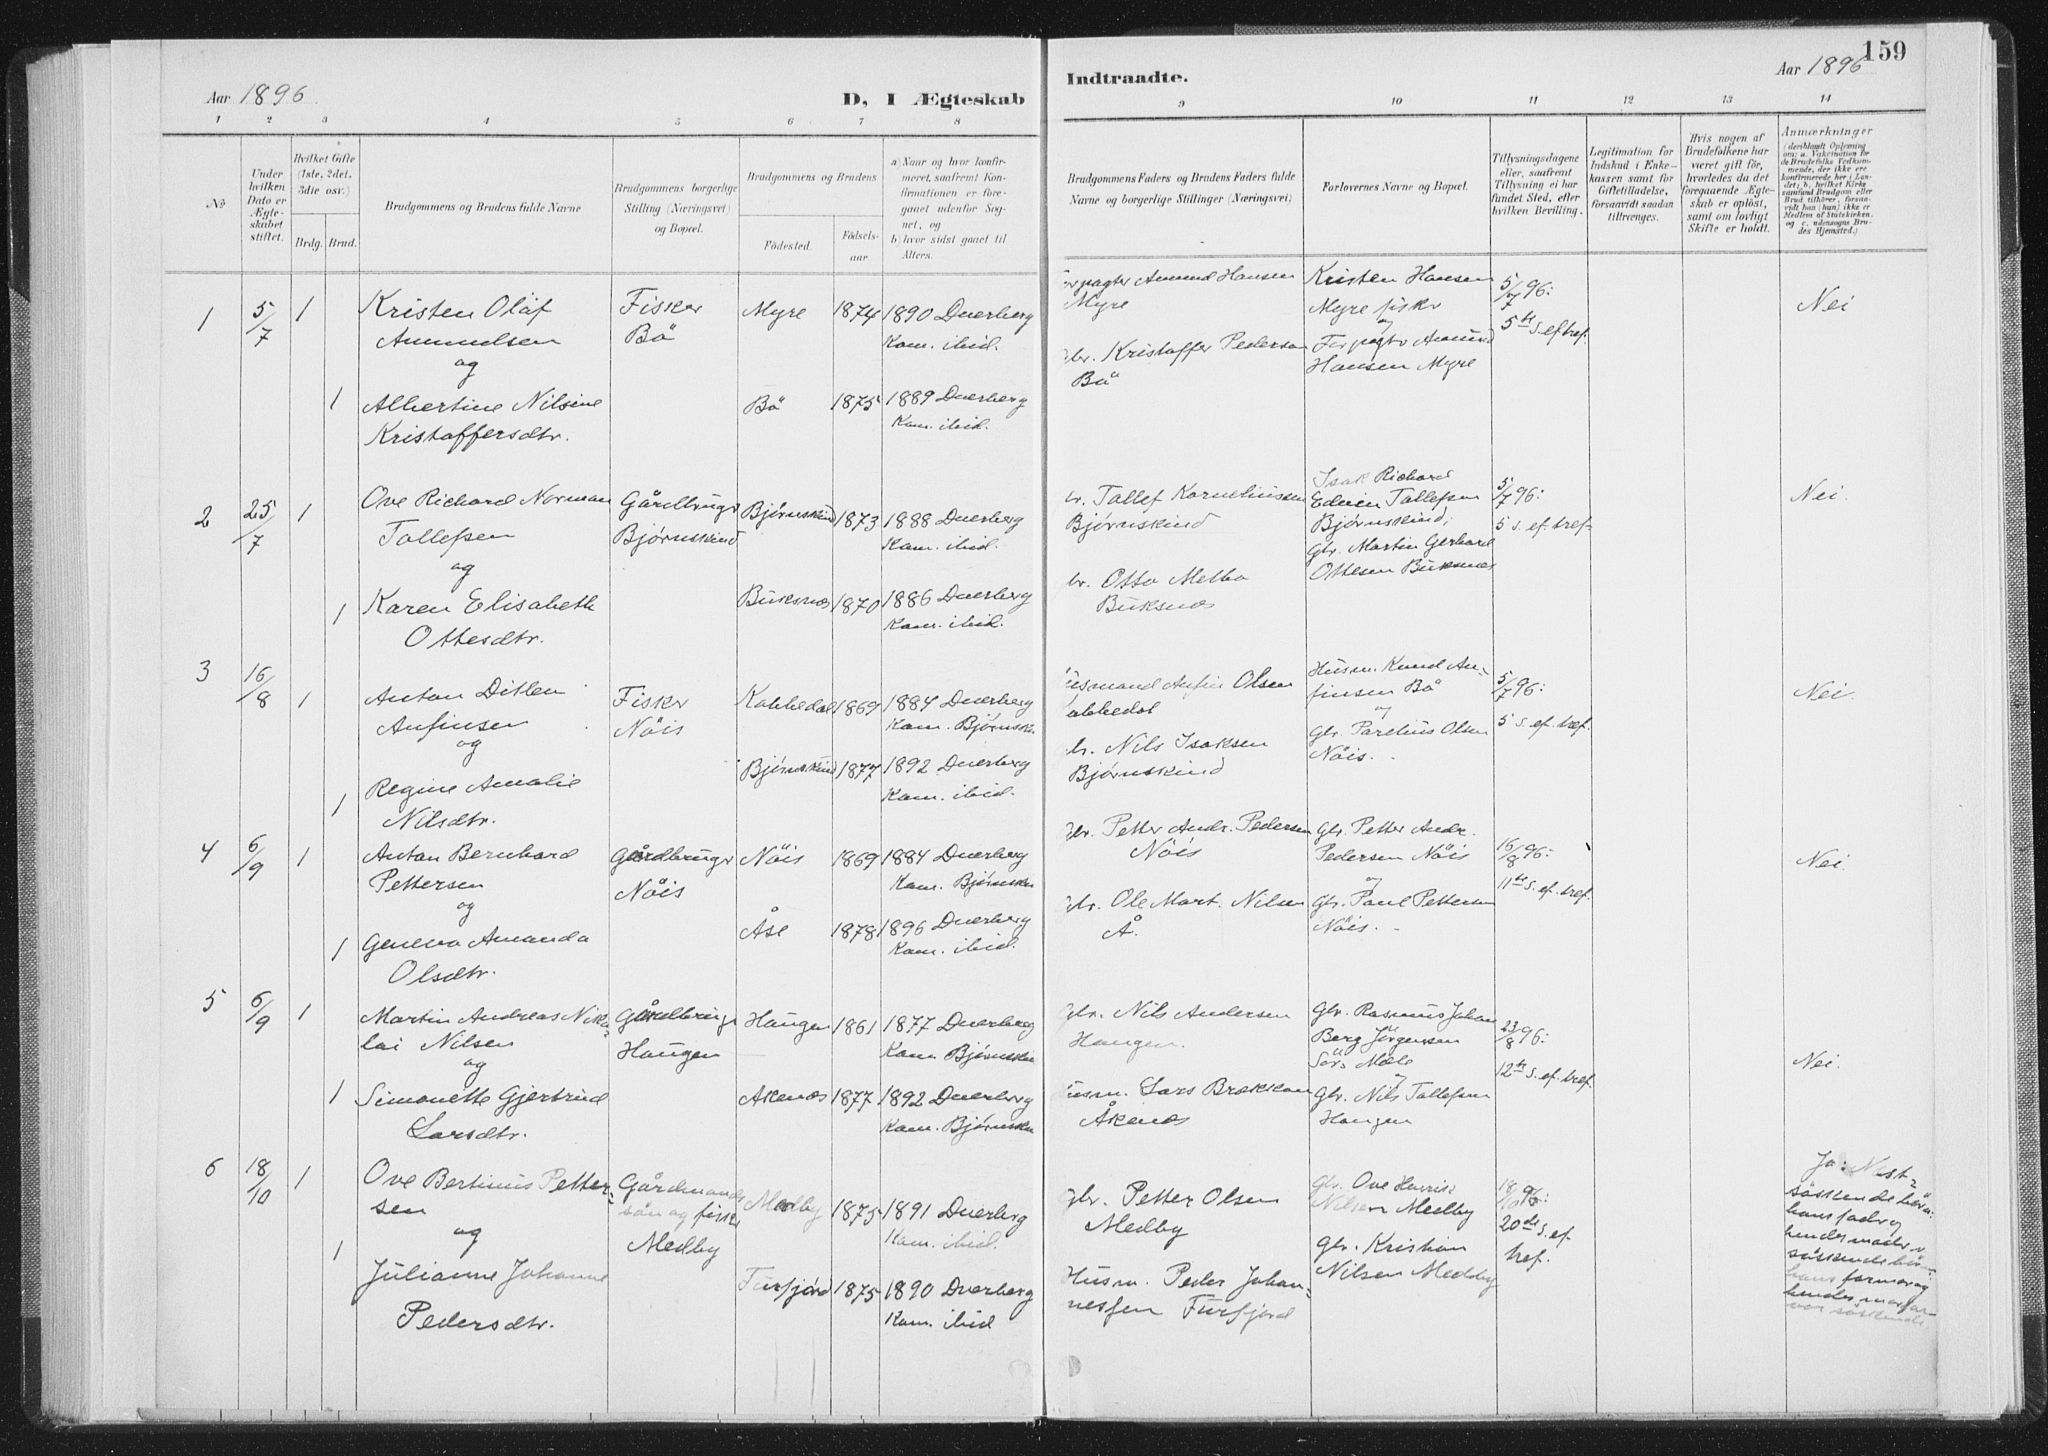 Aar 1896
D, I Ægteskab
1 2 3 4 5 6 7 8
No
Under hvilken Dato er Ægteskabet stiftet.
Hvilket Gifte (1ste, 2det, 3die osv.)
Brdg. Brud.
Brudgommens og Brudens fulde Navne
Brudgommens borgerlige Stilling (Næringsvei) og Bopæl.
Brudgommens og Brudens
Fødested.
Fødselsaar.
a) Naar og hvor konfirmeret, saafremt Konfirmationen er foregaaet udenfor Sognet, og
b) hvor sidst gaaet til Alters.
1 5/7 1 Kristen Olaf Fisker Myre 1874 1890 Dverberg
Amundsen Bö Kom. ibid.
og
1 Albertine Nilsine Bö 1875 1889 Dverberg
Kristoffersdtr. Kom. ibid.
2 25/7 1 Ove Richard Norman Gårdbrugr Bjørnskind 1873 1888 Dverberg
Tollefsen Bjørnskind Kom. ibid.
og
1 Karen Elisabeth Buksnes 1870 1886 Dverberg
Ottesdtr. Kom. ibid.
3 16/8 1 Anton Ditlen Fisker Kobbedal 1869 1884 Dverberg
Anfinsen Nöis Kom. Bjørnsk.
og
1 Regine Amalie Bjørnskind 1877 1892 Dverberg
Nilsdtr. Kom. ibid.
4 6/9 1 Anton Bernhard Gårdbrugr Nöis 1869 1884 Dverberg
Pettersen Nöis Kom. Bjørnskin
og
1 Geneva Amanda Åse 1878 1896 Dverberg
Olsdtr. Kom. ibid.
5 6/9 1 Martin Andreas Niko- Gårdbrugr Haugen 1861 1877 Dverberg
lai Nilsen Haugen Kom. Bjørnskin
og
1 Simonette Gjertrud Åkenes 1877 1892 Dverberg
Larsdtr. Kom. Bjørnskin
6 18/10 1 Ove Bertinus Petter- Gårdmands Medby 1875 1891 Dverberg
sen sön og fisker Kom. ibid.
og Medby
1 Julianne Johanne Furfjord 1875 1890 Dverberg
Pedersdtr. Kom. ibid
Indtraadte.
Aar 1896 159
9 10 11 12 13 14
Brudgommens Faders og Brudens Faders fulde Navne og borgerlige Stillinger (Næringsvei)
Forlovernes Navne og Bopæl.
Tillysningsdagene eller, saafremt Tillysning ei har fundet Sted, efter hvilken Bevilling.
Legitimation for Indskud i Enkekassen samt for Giftetilladelse, forsaavidt saadan tiltrænges.
Hvis nogen af Brudefolkene har været gift før, hvorledes da det foregaaende Ægteskab er opløst, samt om lovligt Skifte er holdt.
Anmærkninger
(deriblandt Oplysning om: a. Vakcination for de Brudefolks Vedkommende, der ikke ere konfirmerede her i Landet; b. hvilket Kirkesamfund Brudgom eller Brud tilhører, forsaavidt han (hun) ikke er Medlem af Statskirken. og c. udensogns Brudes Hjemsted.)
Forpagter Amund Hansen Kristen Hansen 5/7 96:
Myre Myre fisker 5te s. ef. tref. Nei
og
Gbr. Kristoffer Pedersen Forpagtr Amund
Bö Hansen Myre
Gbr. Tollef Korneliussen Isak Richard 5/7 96: Nei.
Bjørnskind Edvin Tollefsen 5 s. ef. tref.
Bjørnskind,
Gbr. Martin Gerhard
Gbr. Otto Ottesen Buksnes
Buksnes
Husmand Anfin Olsen Husm. Knud An- 5/7 96: Nei.
Kobbedal finsen Bö 5 s. ef. tref.
og
Gbr. Nils Isaksen Gbr. Parelius Olsen
Bjørnskind Nöis.
Gbr. Petter Andr. Pedersen Gbr. Petter Andr. 16/8 96: Nei.
Nöis Pedersen Nöis 11te s. ef. tref.
og
Gbr. Ole Mart. Nilsen Gbr. Paul Pettersen
Å. Nöis.
Gbr. Nils Andersen Gbr. Rasmus Johan 23/8 96: Nei.
Haugen. Berg Jörgensen 12te s. ef. tref.
Sör Mele
og
Husm. Lars Brekkan Gbr. Nils Tollefsen
Åkenes Haugen
Gbr. Petter Olsen Gbr. Ove Henrik 18/10 96:
Medby Nilsen Medby 20de s. ef.
Gbr. Kristian tref.
Husm. Peder Johan- Nilsen Medby
nessen Furfjord
Ja: Nest-
söskendebörn:
hans fader og
hendes moder v.
söskendebörn
hans farmor og
hendes
var söskende